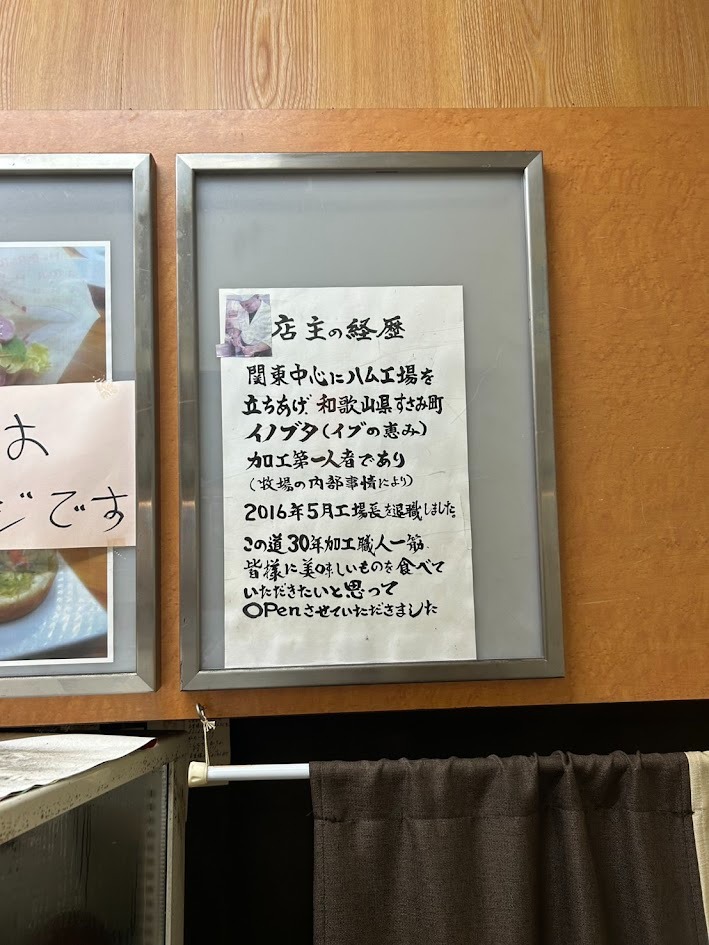 店主の経歴
関東中心にハム工場を
立ちあげ、和歌山県すさみ町
イノブタ(イブの恵み)
加工第一人者であり
(牧場の内部事情により)
2016年5月工場長を退職しました。
この道30年加工職人一筋
皆様に美味しいものを食べて
いただきたいと思って
OPenさせていただきました
お
ジです